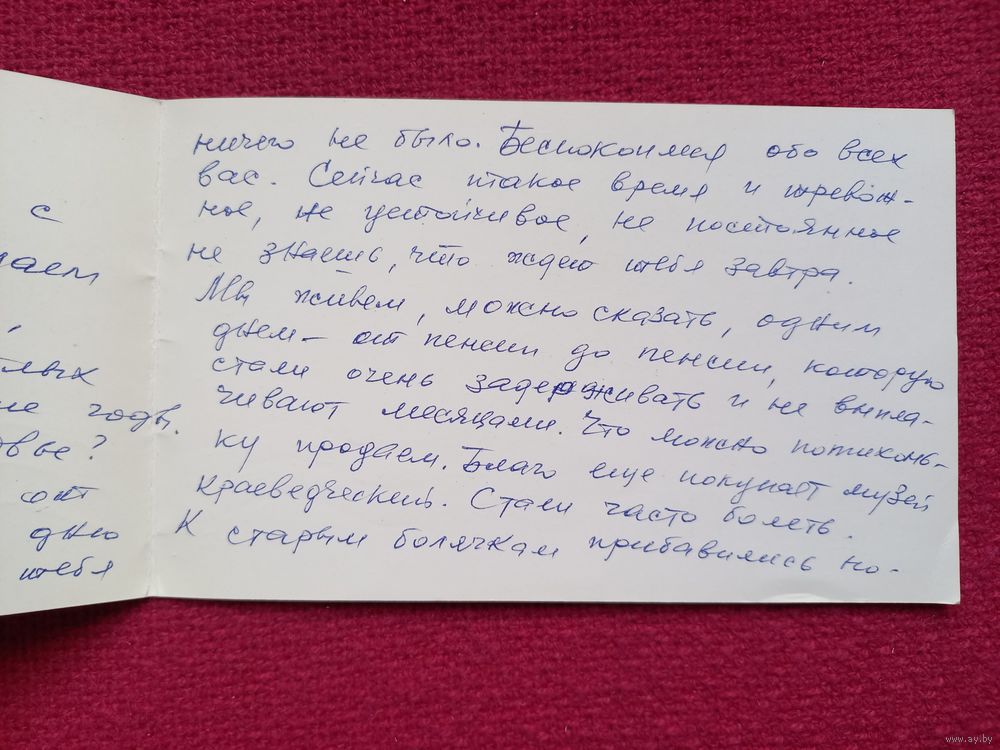 с
аем
,
лых
ие годы.
овье?
от
дню
тебя
ничего не было. Беспокоимся обо всех
вас. Сейчас такое время и тревож-
ное, не устойчивое, не постоянное
не знаешь, что ждет тебя завтра.
Мы живем, можно сказать, одним
днем - от пенсии до пенсии, которую
стали очень задерживать и не выпла-
чивают месяцами. Что можно потихонь-
ку продаем. Благо еще покупает музей
краеведческий. Стали часто болеть.
К старым болячкам прибавились но-
www.ay.by